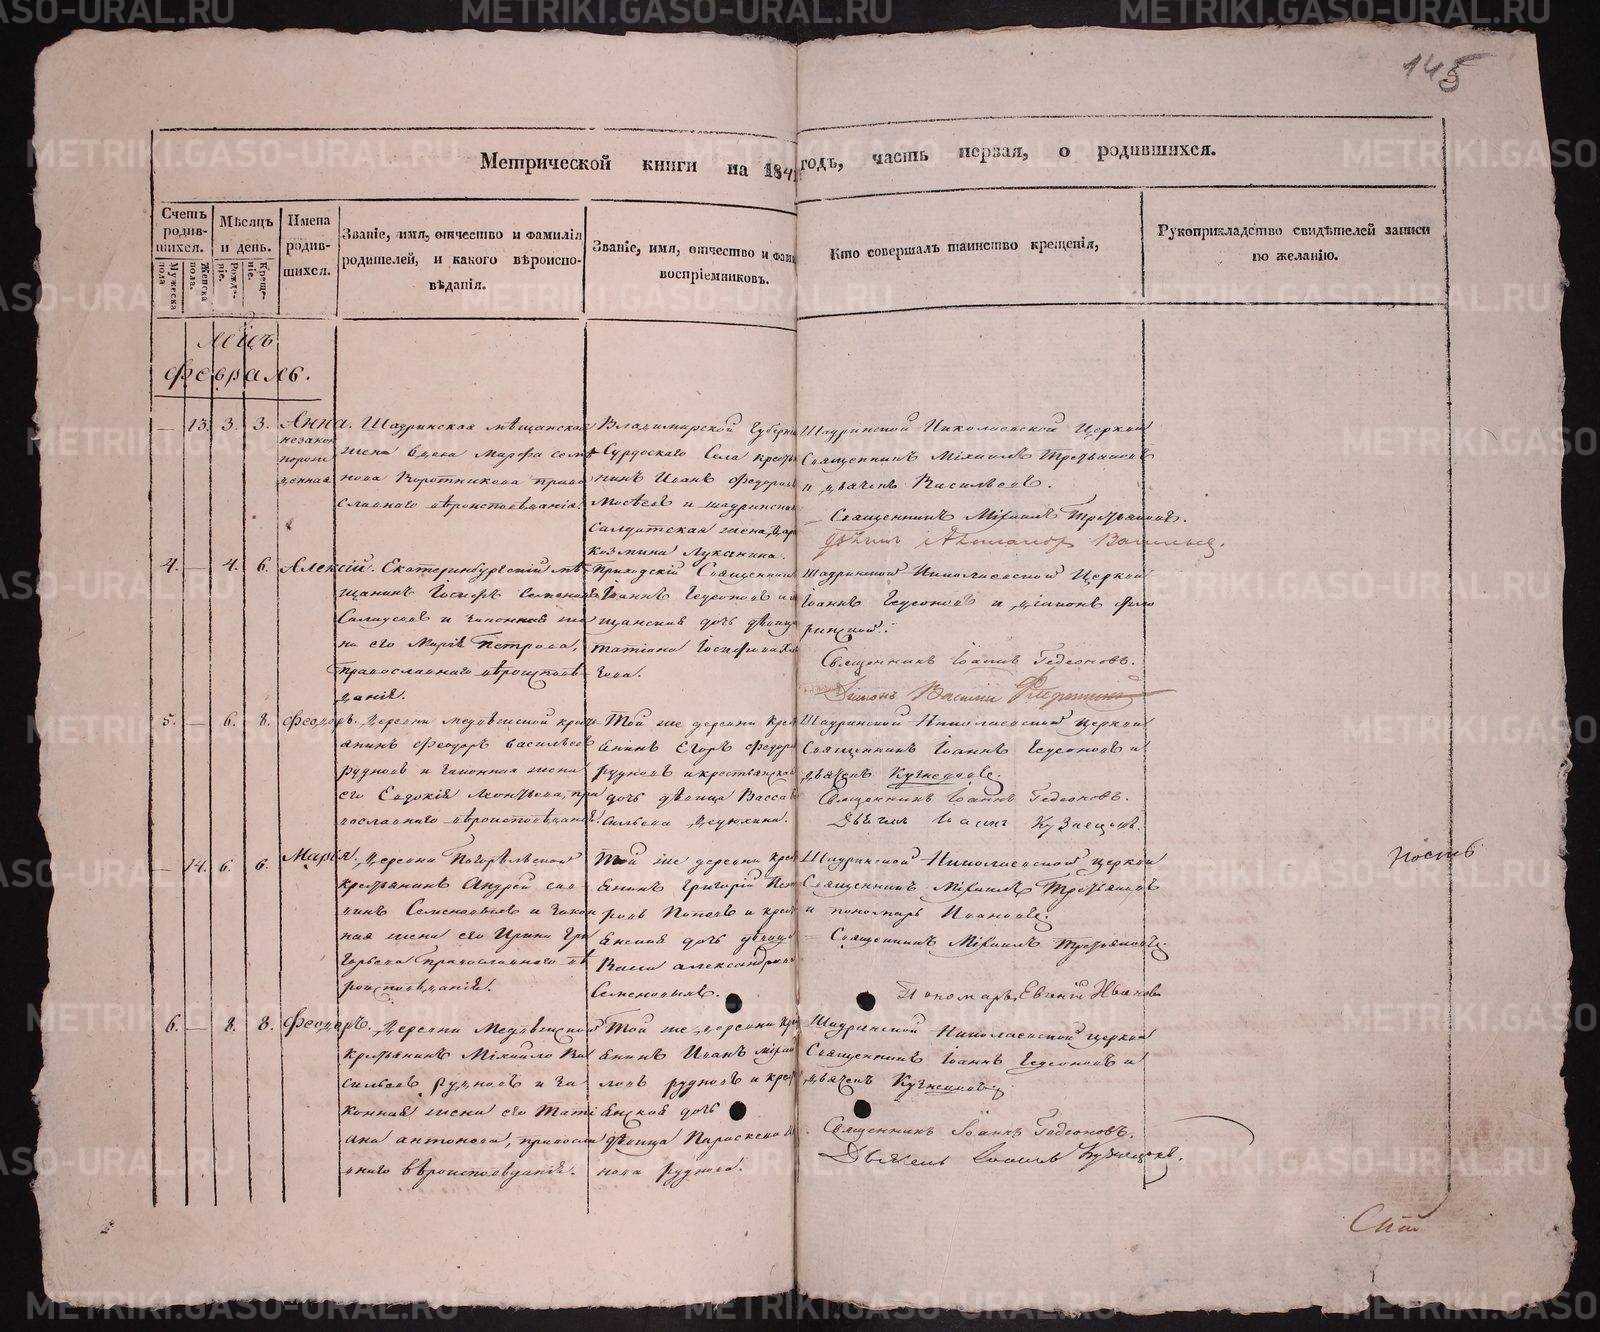 145
Метрической книги на 184 годъ, часть первая, о родившихся.
Счетъ родив-шихся.
Мужеска пола
Женска пола.
Мѣсяцъ и день.
Рожде-ніе.
Креще-ніе.
Имена родив-шихся.
Званіе, имя, отчество и фамилія родителей, и какого вѣроиспо-вѣданія.
Званіе, имя, отчество и фами
воспріемниковъ.
Кто совершалъ таинство крещенія,
Рукоприкладство свидѣтелей записи по желанію.
Февраль.
— 13. 3. 3. Анна.
незакон
норож
денная
Шадринская мѣщанская
жена вдова Марфа сем
нова Коротникова право
славнаго вѣроисповѣданія.
Владимирской Губерн
Села кресть
нинъ Иванъ Федоровъ
и шадринска
Салдатская жена
козмина Луканина.
Шадринской Николаевской Церкви
Священникъ Михаилъ Третьяковъ
и дьячекъ Васильевъ.
Священникъ Михаилъ Третьяковъ.
4. — 4. 6. Алексій.
Екатеринбургскій мѣ
щанинъ Іосифъ Семеновъ
и законная же
на его Марія Петрова,
православнаго вѣроисповѣ
данія.
Приходскій Священникъ
Іоаннъ Гедеоновъ и
щанская дочь дѣвица
татіана Іосифова
Шадринской Николаевской Церкви
Іоаннъ Гедеоновъ и діаконъ фло
ринской.
Священникъ Іоаннъ Гедеоновъ.
Діаконъ Василій
5. — 6. 8. Феодоръ.
Деревни кресть
янинъ Феодоръ васильевъ
рудновъ и законная жена
его Евдокія Леонтьева, пра
вославнаго вѣроисповѣданія.
Той же деревни крест
янинъ Егоръ Федоро
рудновъ и крестьянская
дочь дѣвица Васса
сильева
Шадринской Николаевской церкви
Священникъ Іоаннъ Гедеоновъ и
дьячекъ Кузнецовъ.
Священникъ Іоаннъ Гедеоновъ.
Дьячекъ Іоаннъ Кузнецовъ.
— 14. 6. 6. Марія.
Деревни Погорѣльской
крестьянинъ Андрей
Семеновыхъ и закон
ная жена его Ирина Гри
горьева православнаго вѣ
роисповѣданія.
Той же деревни крес
янинъ Григорій Пет
ровъ Поповъ и крест
янская дочь дѣвица
александрова
Семеновыхъ.
Шадринской Николаевской церкви
Священникъ Михаилъ Третьяковъ
и пономарь Ивановъ.
Священникъ Михаилъ Третьяковъ.
Пономарь Евгеній Ивановъ
6. — 8. 8. Феодоръ.
Деревни
Крестьянинъ Михайло Ва
сильевъ рудновъ и за
конная жена его Тати
ана антонова, правосла
внаго вѣроисповѣданія.
Той же деревни кре
янинъ Иванъ михай
ловъ рудновъ и крес
янская дочь
дѣвица Параскева
нова руднова.
Шадринской Николаевской церкви
Священникъ Іоаннъ Гедеоновъ и
дьячекъ Кузнецовъ
Священникъ Іоаннъ Гедеоновъ.
Дьячекъ Іоаннъ Кузнецовъ.
ность
METRIKI.GASO-URAL.RU